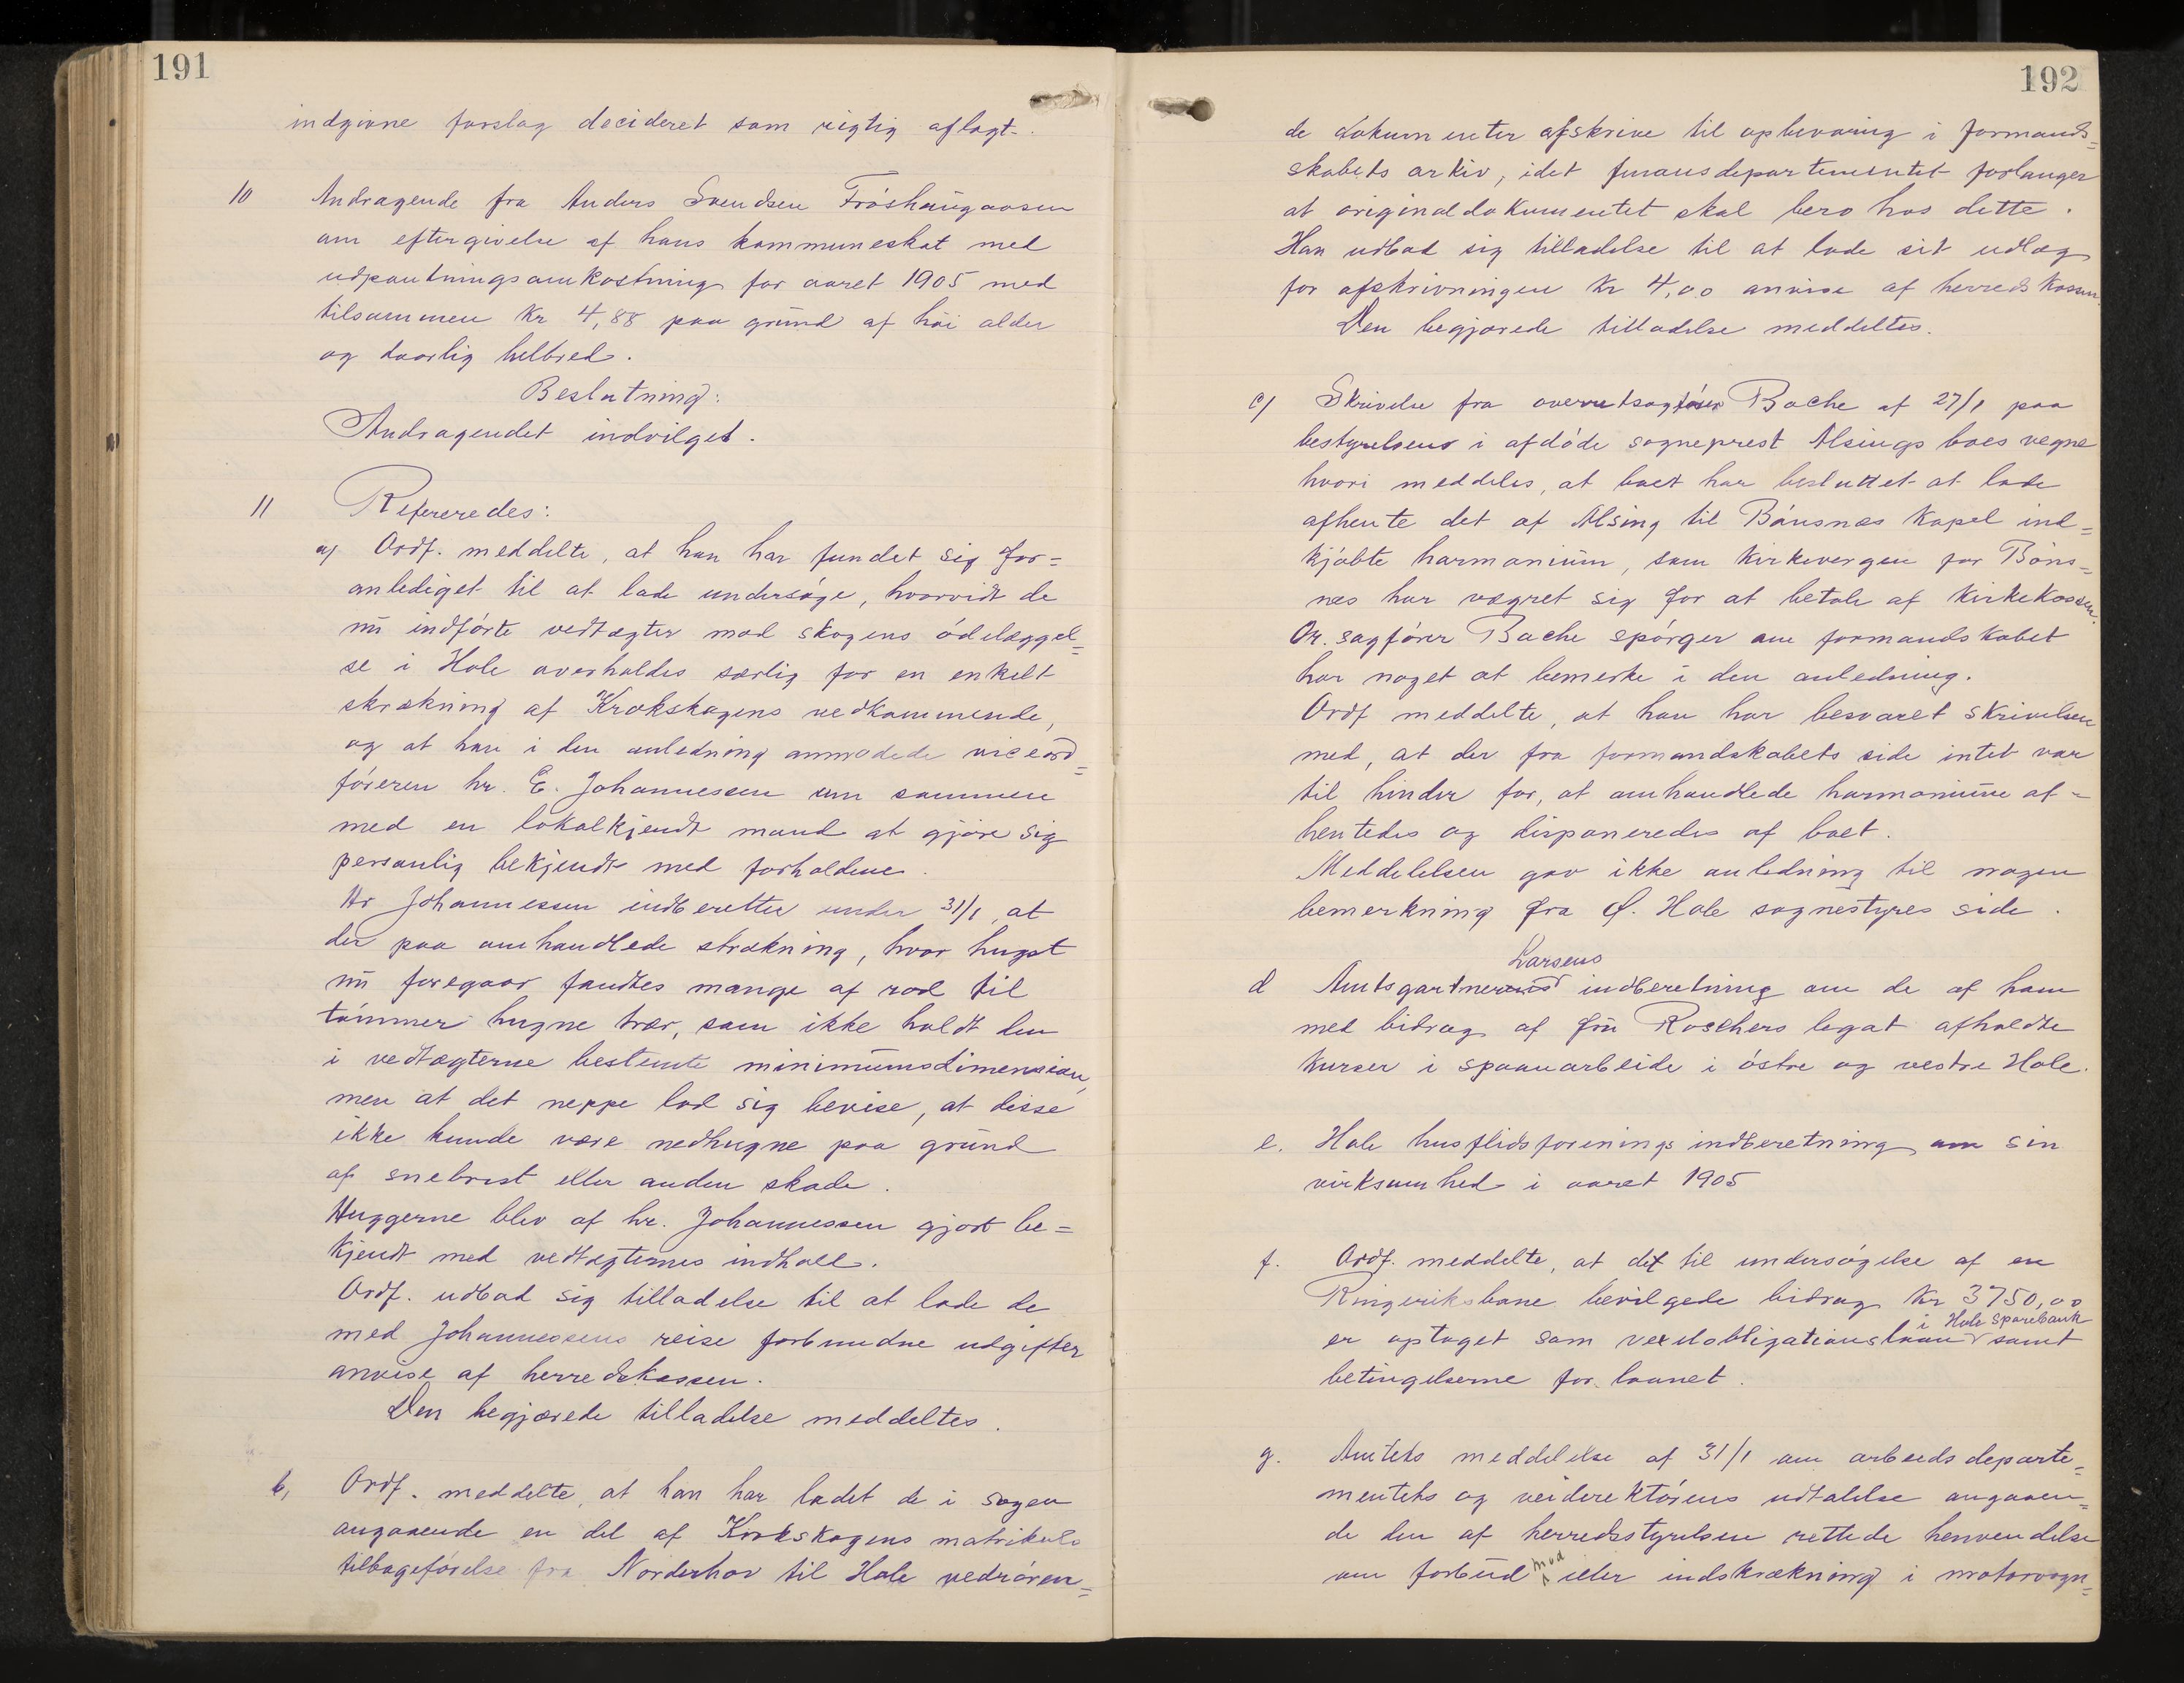 191
indgivne forslag decideret som rigtig aflagt.
10 Andragende fra Anders Svendsen Fröshaugaasen
om eftergivelse af hans kommuneskat med
udpantningsomkostning for aaret 1905 med
tilsammen Kr 4,88 paa grund af höi alder
og daarlig helbred.
Beslutning:
Andragendet indvilget.
11 Refereredes:
a) Ordf. meddelte, at han har fundet sig for=
anlediget til at lade undersöge, hvorvidt de
nu indförte vedtægter mod skogens ödelæggel=
se i Hole overholdes særlig for en enkelt
strækning af Krokskogens vedkommende,
og at han i den anledning anmodede viceord=
föreren hr. E. Johannessen om sammen
med en lokalkjendt mand at gjöre sig
personlig bekjendt med forholdene.
Hr Johannessen indberetter under 31/1, at
der paa omhandlede strækning, hvor hugst
nu foregaar fandtes mange af rod til
tömmer hugne trær, som ikke holdt den
i vedtægterne bestemte minimumsdimension,
men at det neppe lod sig bevise, at disse
ikke kunde være nedhugne paa grund
af snebrist eller anden skade.
Huggerne blev af hr. Johannessen gjort be=
kjendt med vedtægternes indhold.
Ordf. udbad sig tilladelse til at lade de
med Johannessens reise forbundne udgifter
anvise af herredskassen.
Den begjærede tilladelse meddeltes.
b, Ordf. meddelte, at han har ladet de i sagen
angaaende en del af Krokskogens matrikuls
tilbageförelse fra Norderhov til Hole vedrören=
192
de dokumenter afskrive til opbevaring i formand=
skabets arkiv, idet finansdepartementet forlanger
at originaldokumentet skal bero hos dette.
Han udbad sig tilladelse til at lade sit udlæg
for afskrivningen Kr 4,00 anvise af herredskassen.
Den begjærede tilladelse meddeltes.
c) Skrivelse fra overretssagförer Bache af 27/1 paa
bestyrelsens i afdöde sogneprest Alsings boes vegne
hvori meddeles, at boet har besluttet at lade
afhente det af Alsing til Bönsnæs Kapel ind=
kjöbte harmonium, som Kirkevergen for Böns=
næs har vægret sig for at betale af Kirkekassen.
Or. sagförer Bache spörger om formandskabet
har noget at bemerke i den anledning.
Ordf meddelte, at han har besvaret skrivelsen
med, at der fra formandskabets side intet var
til hinder for, at omhandlede harmonium af=
hentedes og disponeredes af boet.
Meddelelsen gav ikke anledning til nogen
bemerkning fra Ø. Hole sognestyres side.
d Amtsgartner Larsens indberetning om de af ham
med bidrag af fru Roschers legat afholdte
kurser i spaanarbeide i östre og vestre Hole.
e. Hole husflidsforenings indberetning om sin
virksomhed i aaret 1905
f. Ordf. meddelte, at det til undersögelse af en
Ringeriksbane bevilgede bidrag Kr 3750,00
er optaget som vexelobligationslaan i Hole Sparebank samt
betingelserne for laanet.
g. Amtets meddelelse af 31/1 om arbeidsdeparte=
mentets og veidirektörens udtalelse angaaen=
de den af herredsstyrelsen rettede henvendelse
om forbud mod eller indskrækning i motorvogn=